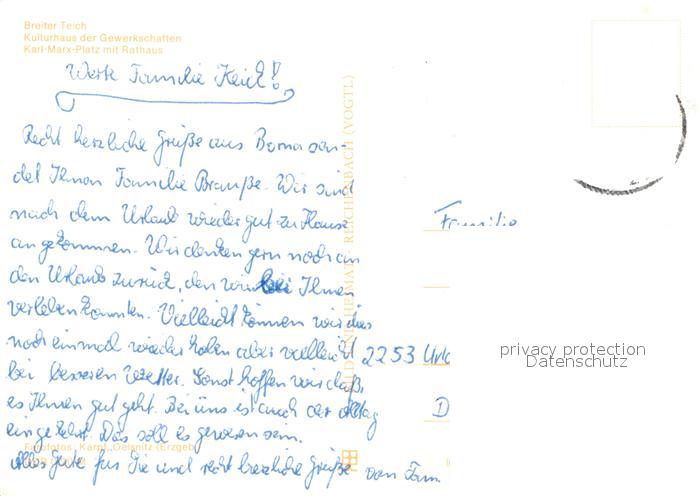 Breiter Teich
Kulturhaus der Gewerkschaften
Karl-Marx-Platz mit Rathaus
Werte Familie Keich!
Recht herzliche Grüße aus Borna sen-
det Ihnen Familie Brauße. Wir sind
nach dem Urlaub wieder gut zu Hause
angekommen. Wir denken gern noch an
den Urlaub zurück, den wir bei Ihnen
verleben konnten. Vielleicht können wir dies
noch einmal wiederholen aber vielleicht
bei besseren Wetter. Sonst hoffen wir daß
es Ihnen gut geht. Bei uns ist auch der Alltag
eingekehrt. Das soll es gewesen sein.
Alles Gute für Sie und recht herzliche Grüße von Fam.
Eurofotos, Kamt, Oelsnitz (Erzgeb
BILD UND HEIMAT REICHENBACH (VOGTL)
Familie
2253
D
privacy protection
Datenschutz